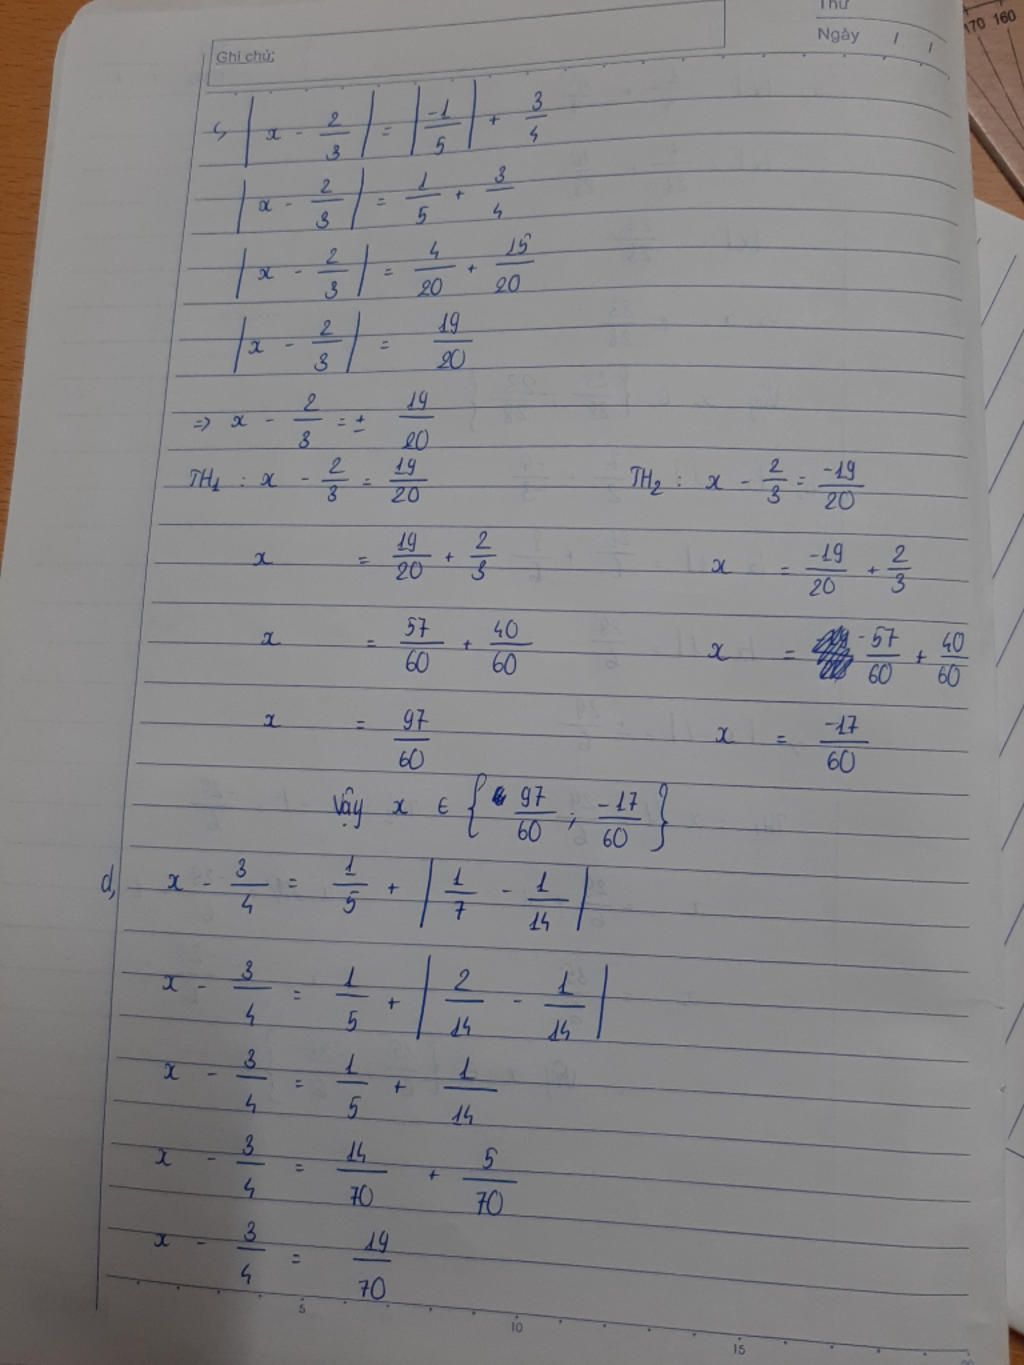 Thứ
Ngày / /
Ghi chú:
170 160
c, |x - 2/3| = |-1/5| + 3/4
|x - 2/3| = 1/5 + 3/4
|x - 2/3| = 4/20 + 15/20
|x - 2/3| = 19/20
=> x - 2/3 = ± 19/20
TH1 : x - 2/3 = 19/20 TH2 : x - 2/3 = -19/20
x = 19/20 + 2/3 x = -19/20 + 2/3
x = 57/60 + 40/60 x = -57/60 + 40/60
x = 97/60 x = -17/60
Vậy x ∈ {97/60 ; -17/60}
d, x - 3/4 = 1/5 + |1/7 - 1/14|
x - 3/4 = 1/5 + |2/14 - 1/14|
x - 3/4 = 1/5 + 1/14
x - 3/4 = 14/70 + 5/70
x - 3/4 = 19/70
5 10 15